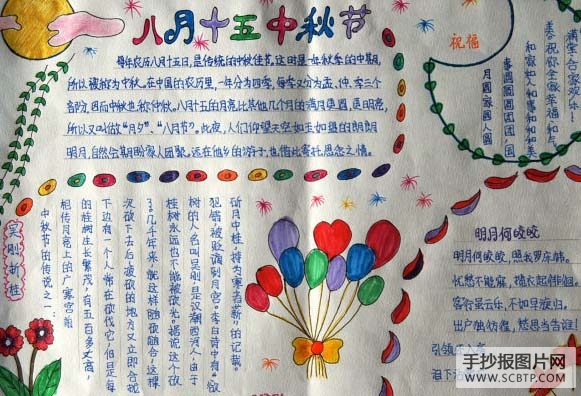 八月十五中秋节
每年农历八月十五日,是传统的中秋佳节。这时是一年秋季的中期,
所以被称为中秋。在中国的农历里,一年分为四季,每季又分为孟、仲、季三个
部分,因而中秋也称仲秋。八月十五的月亮比其他几个月的满月更圆,更明亮,
所以又叫做“月夕”、“八月节”。此夜,人们仰望天空如玉如盘的朗朗
明月,自然会期盼家人团聚。远在他乡的游子,也借此寄托思念之情。
祝福
月圆家圆人圆
事圆圆圆团团圆
和家和人和事和和美
美。祝您全家幸福、和
满堂合家欢乐!
吴刚折桂
中秋节的传说之一:
相传月亮上的广寒宫前
的桂树生长繁茂,有五百多丈高,
下边有一个人常在砍伐它,但是每
次砍下去后,被砍的地方又立即合拢
了。几千年来,就这样随砍随合,这棵
桂树永远也不能被砍光。据说这个砍
树的人名叫吴刚,是汉朝西河人,由于
犯错被贬谪到月宫。李白诗中有“欲
斫月中桂,持为寒者薪”的记载。
明月何皎皎
明月何皎皎,照我罗床帏。
忧愁不能寐,揽衣起徘徊。
客行虽云乐,不如早旋归。
出户独彷徨,愁思当告谁!
引领
泪下
手抄报图片网
WWW.SCBTP.COM